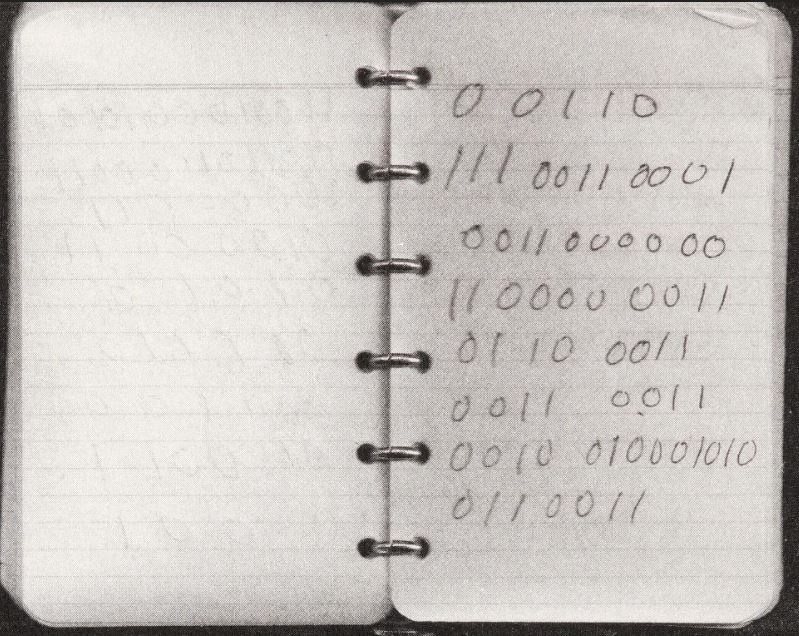 0 0 1 1 0
111 0011 0001
0011 0000 00
11 0000 0011
0110 0011
0011 0011
0010 010001010
0110011